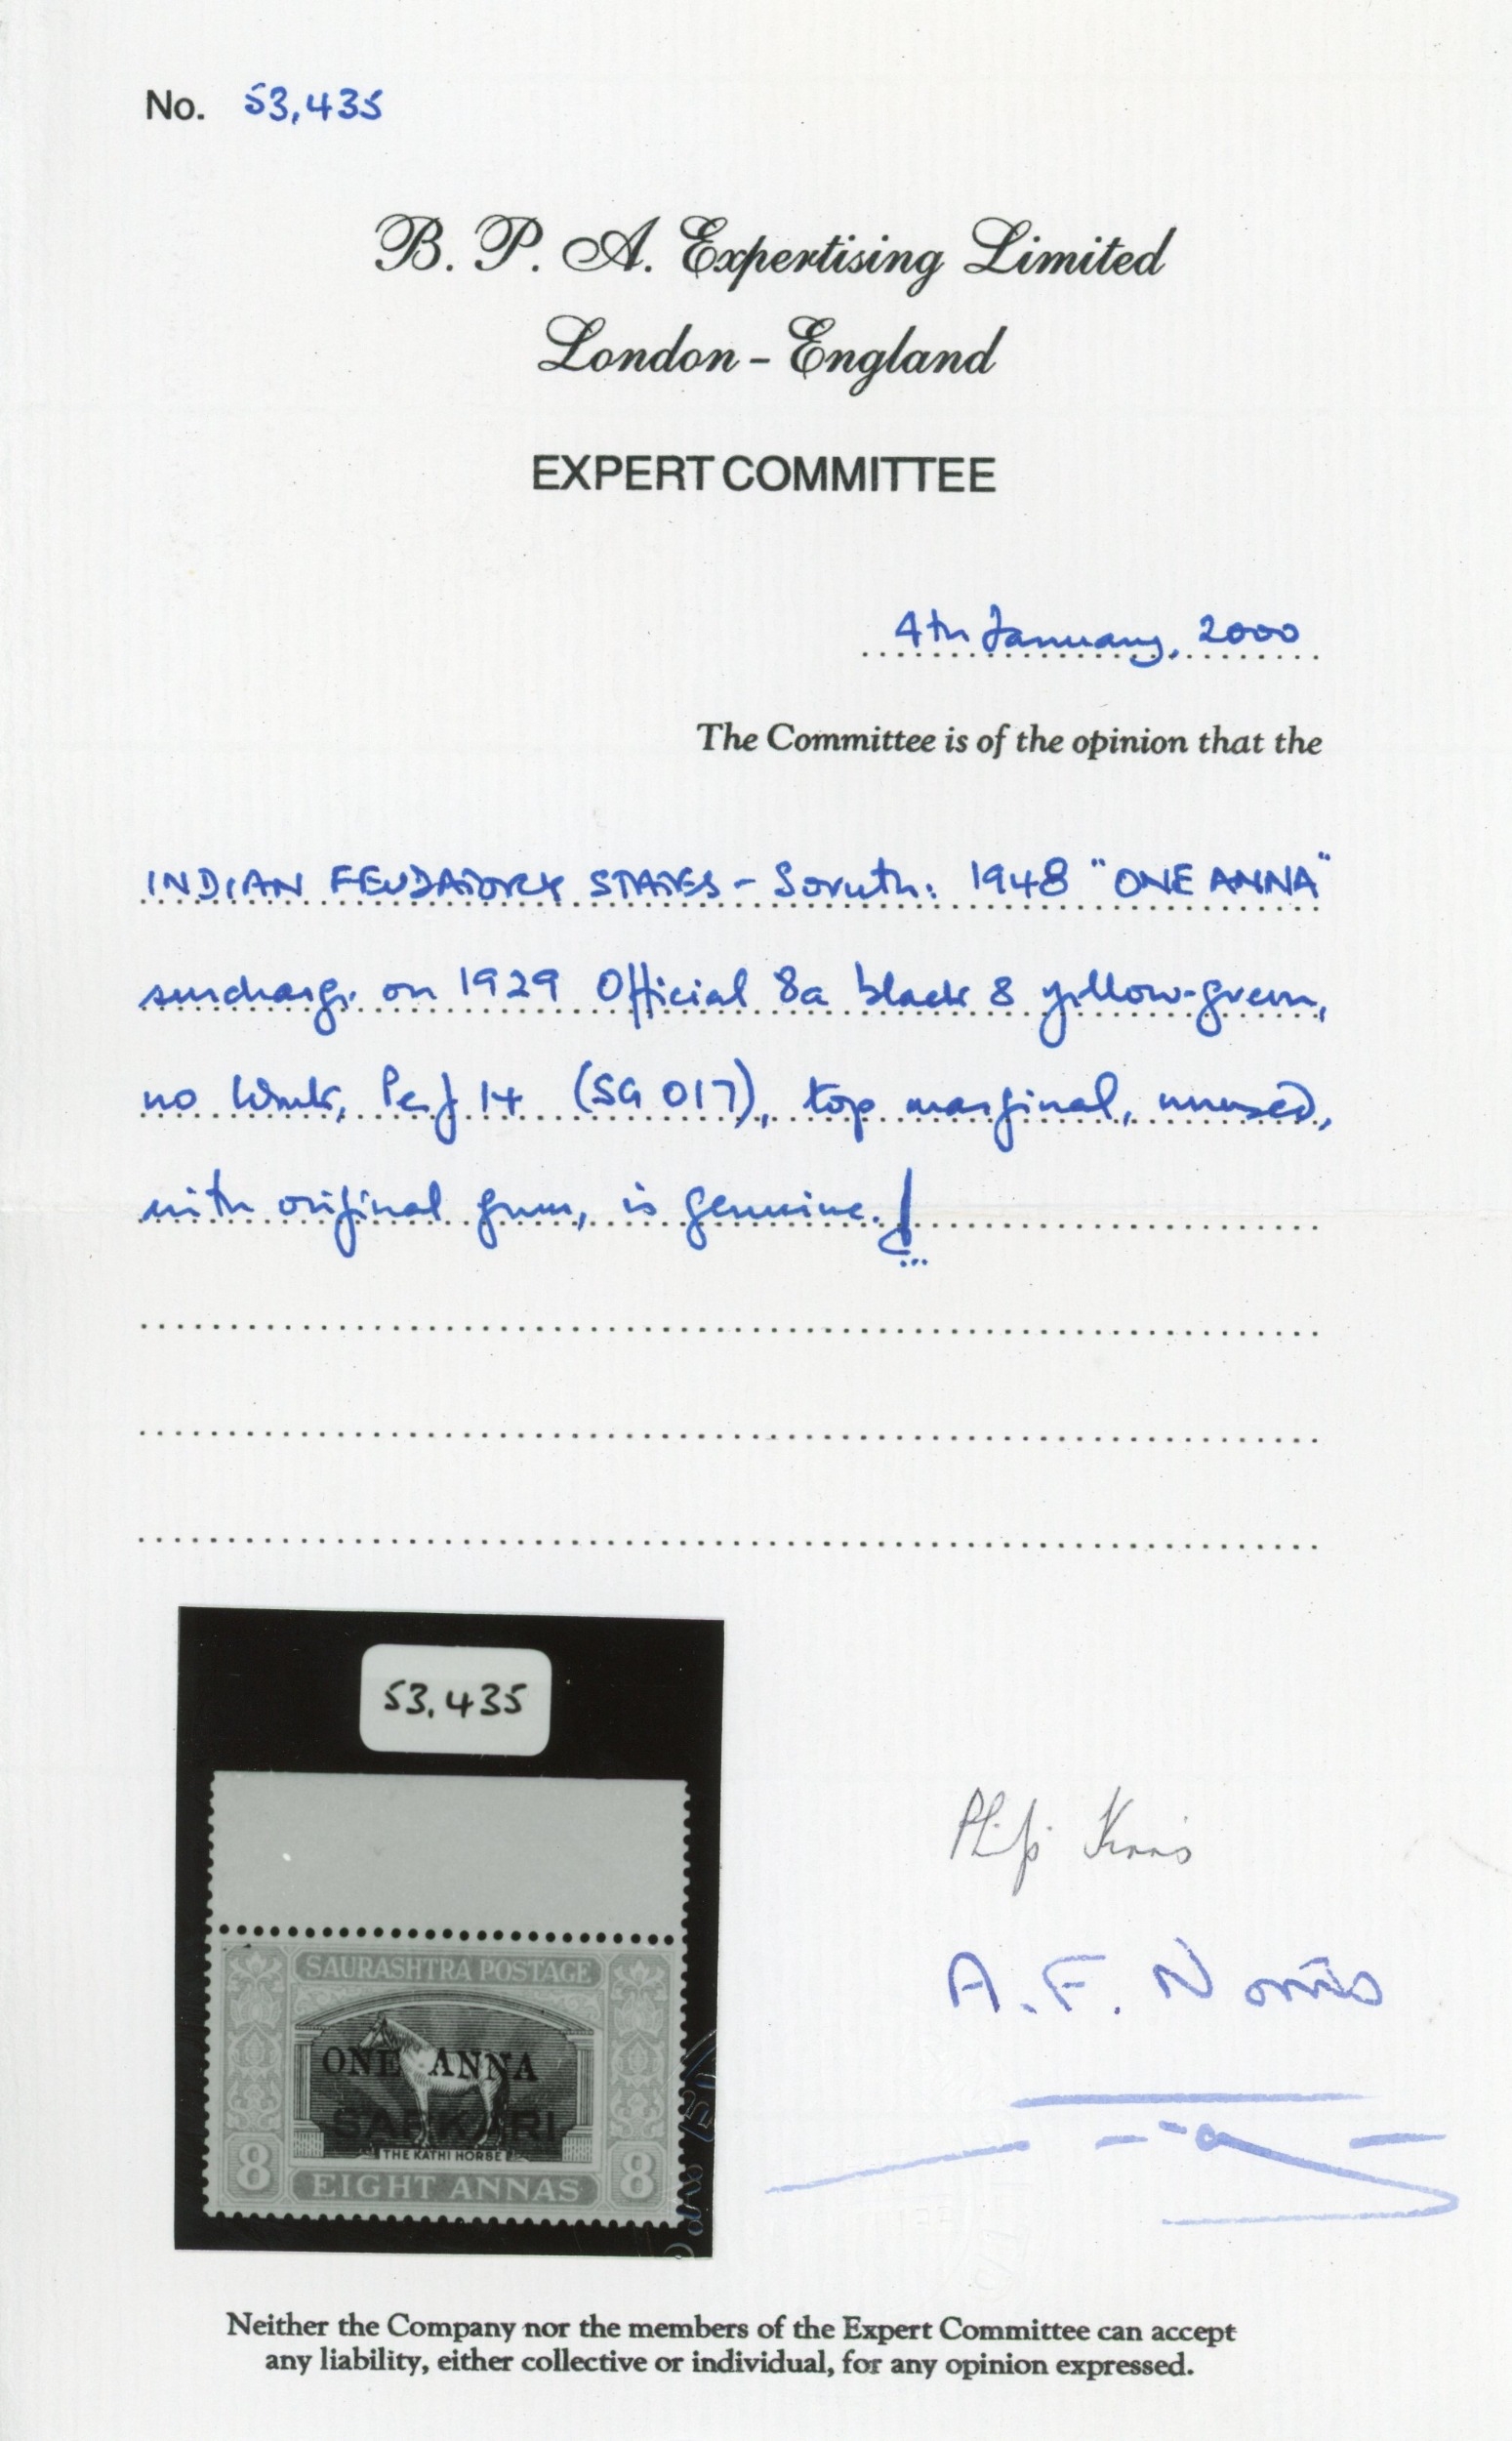 No. 53,435
B. P. A. Expertising Limited
London - England
EXPERT COMMITTEE
4th January, 2000
The Committee is of the opinion that the
INDIAN FEUDATORY STATES - Soruth: 1948 "ONE ANNA"
surcharge on 1929 Official 8a black & yellow-green,
no Wmk, Perf 14 (SG O17), top marginal, unused,
with original gum, is genuine.
53,435
SAURASHTRA POSTAGE
ONE ANNA
SARKARI
THE KATHI HORSE
8 8
EIGHT ANNAS
A. F. Norris
Neither the Company nor the members of the Expert Committee can accept
any liability, either collective or individual, for any opinion expressed.